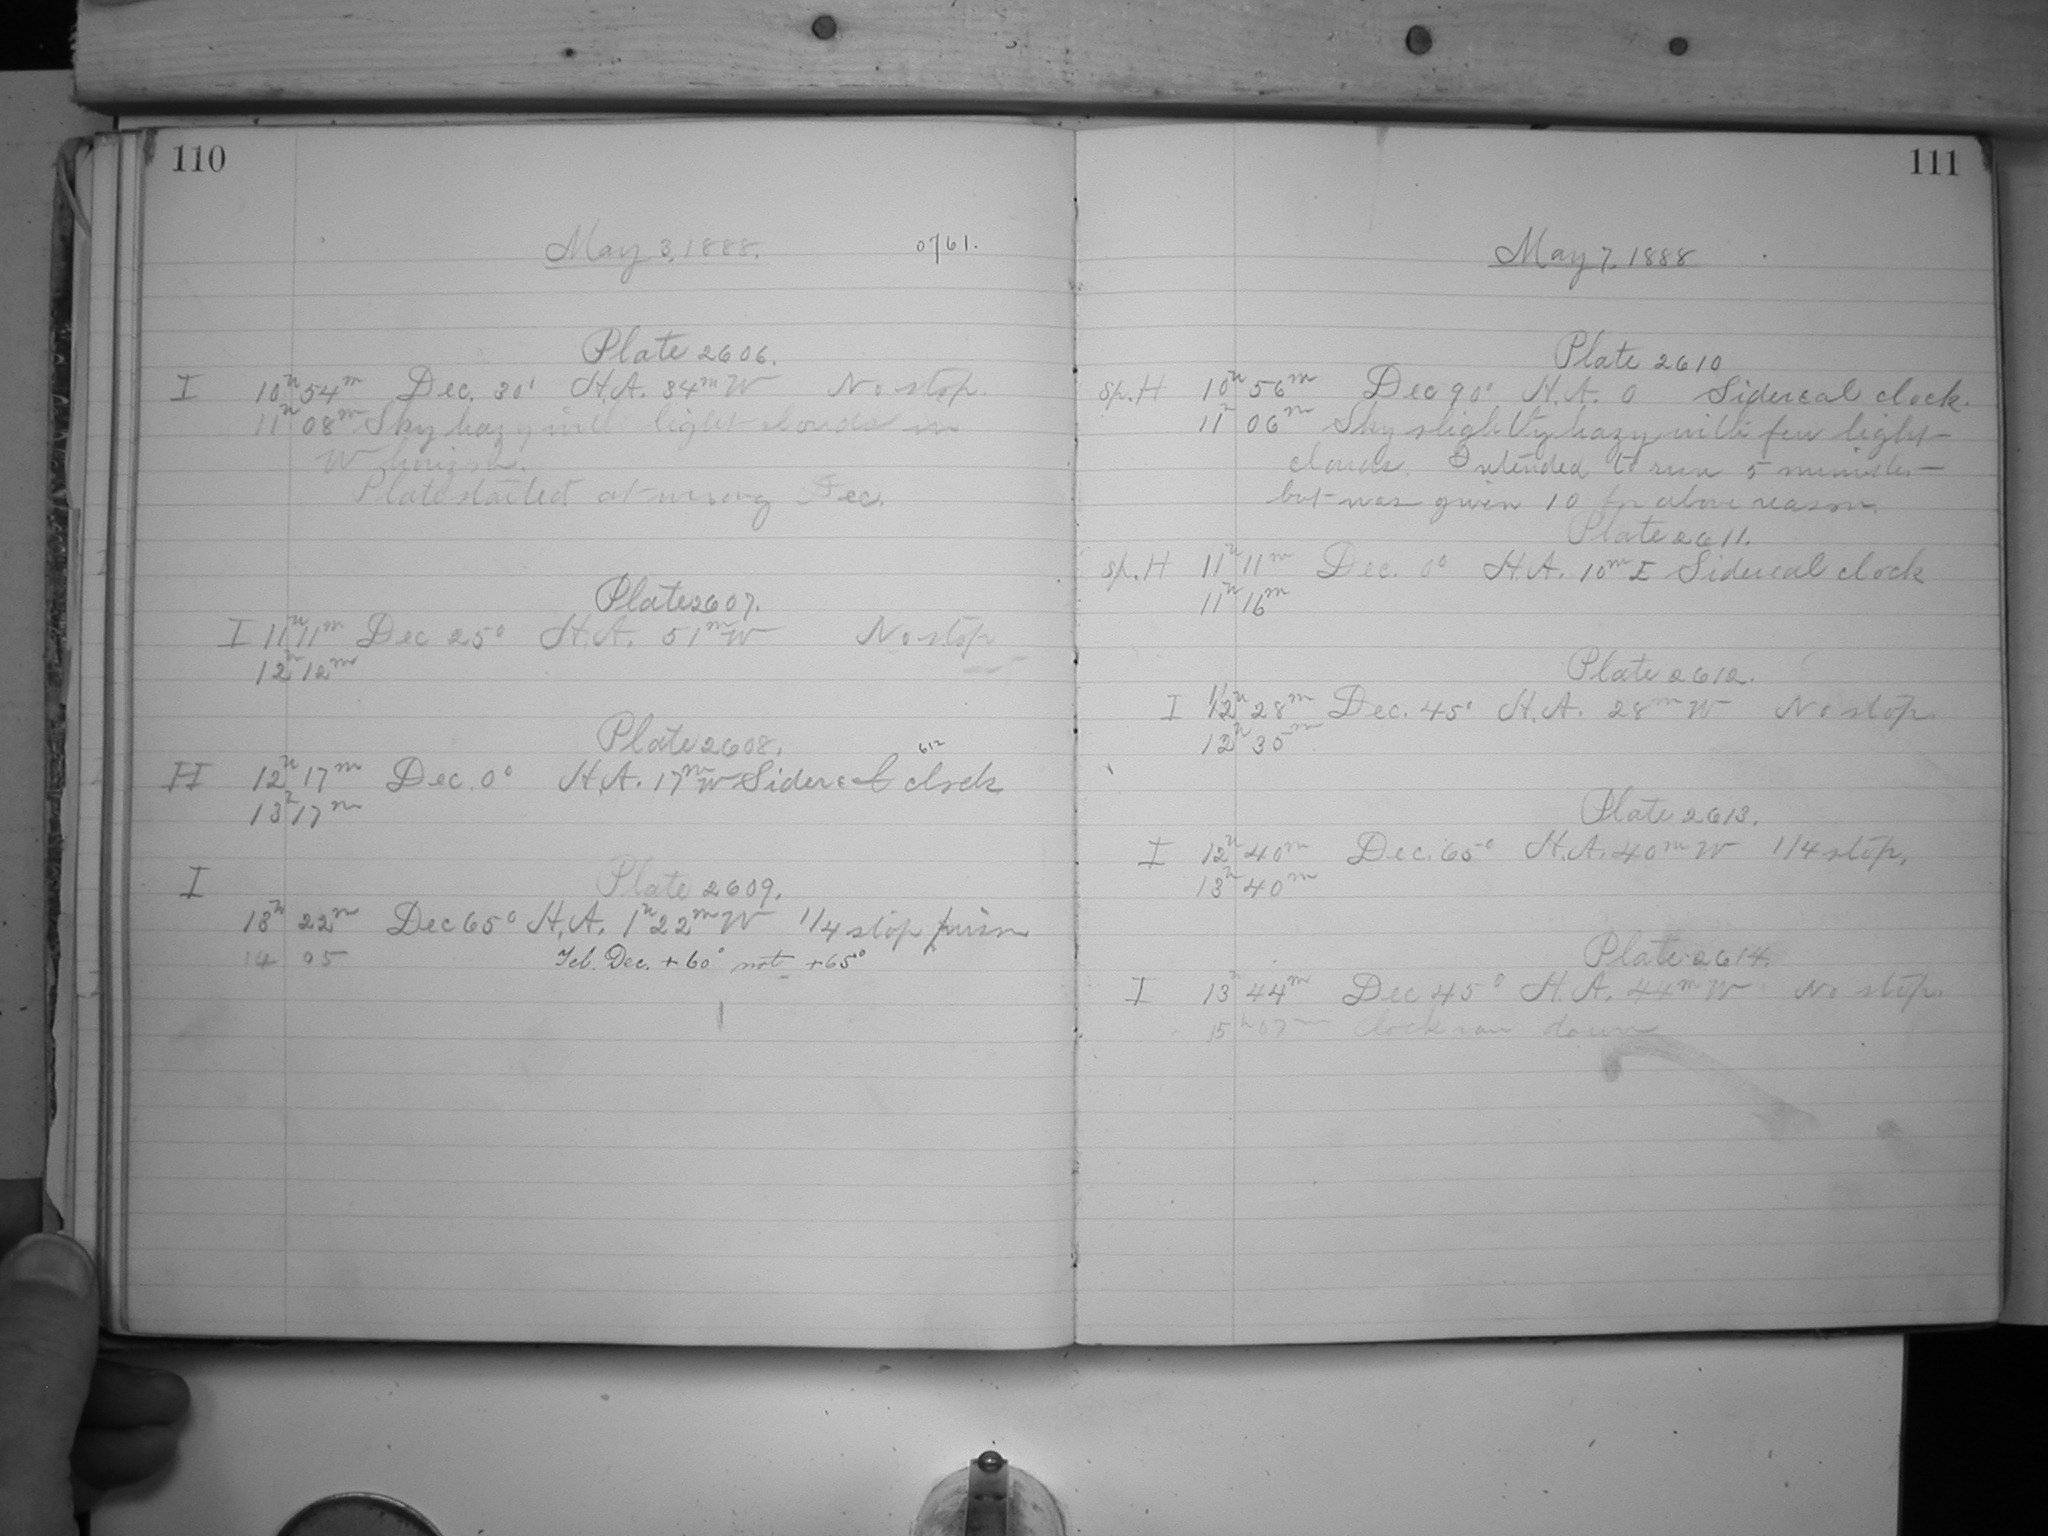 110
May 3, 1888.
0761.
Plate 2606.
I 10h 54m Dec. 30° H.A. 34m W No stop.
11h 08m Sky hazy with light clouds in
W horizon.
Plate started at wrong Dec.
Plate 2607.
I 11h 11m Dec 25° H.A. 51m W No stop
12h 12m
Plate 2608.
612
H 12h 17m Dec. 0° H.A. 17m W Sidereal clock
13h 17m
I Plate 2609.
13h 22m Dec 65° H.A. 1h 22m W 1/4 stop prism
14 05 Dec. +60° not +65°
111
May 7, 1888
Plate 2610
Sp. H 10h 56m Dec 90° H.A. 0 Sidereal clock.
11h 06m Sky slightly hazy with few light
clouds. Intended to run 5 minutes
but was given 10 for above reason.
Plate 2611.
Sp. H 11h 11m Dec. 0° H.A. 10m E Sidereal clock
11h 16m
Plate 2612.
I 28m Dec. 45° H.A. 28m W No stop
12h 35m
Plate 2613.
I 12h 40m Dec. 65° H.A. 40m W 1/4 stop.
13h 40m
Plate 2614.
I 13h 44m Dec 45° H.A. 44m W No stop.
15h 07m Clock ran down